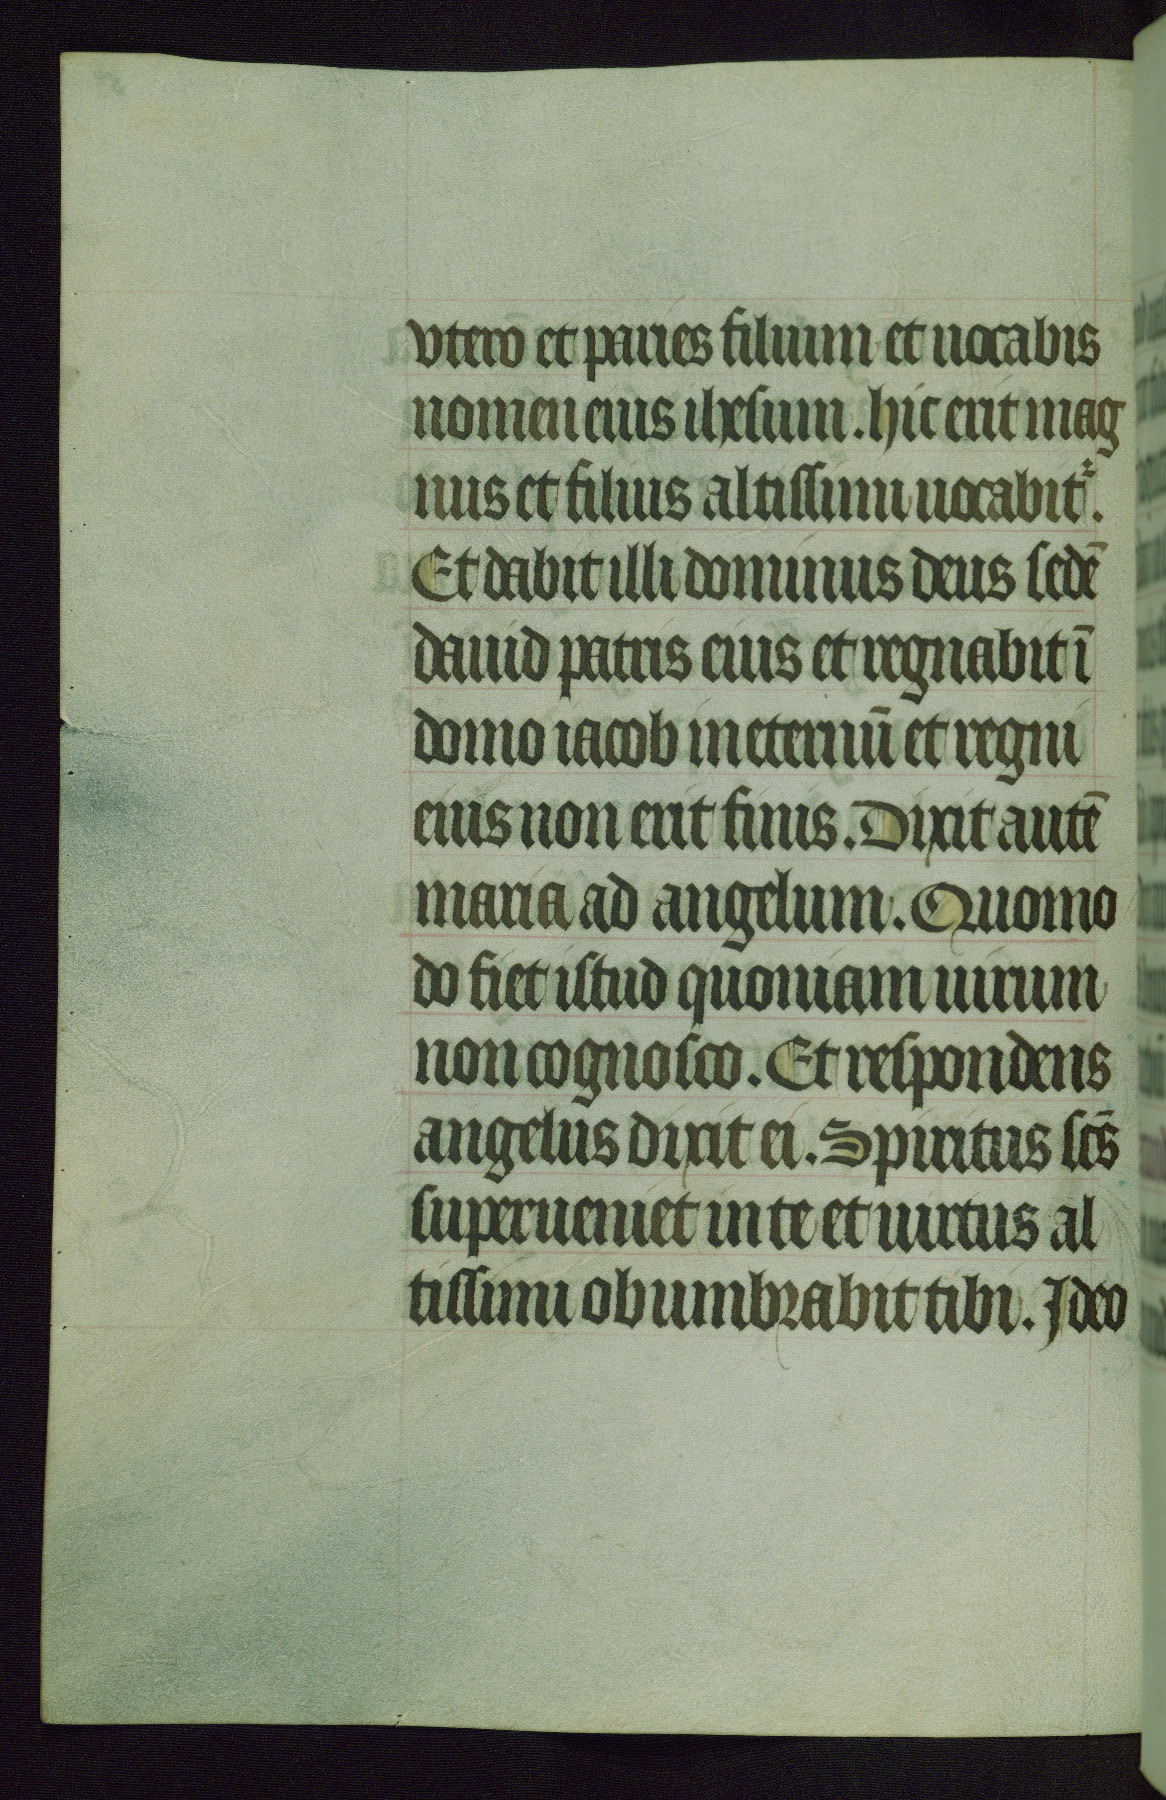 vtero et paries filium et uocabis
nomen eius ihesum. hic erit mag
nus et filius altissimi uocabit᷑.
Et dabit illi dominus deus sedē
dauid patris eius et regnabit ī
domo iacob in eternū et regni
eius non erit finis. Dixit autē
maria ad angelum. Quomo
do fiet istud quoniam uirum
non cognosco. Et respondens
angelus dixit ei. Spiritus scs̄
superueniet in te et uirtus al
tissimi obumbrabit tibi. Ideo